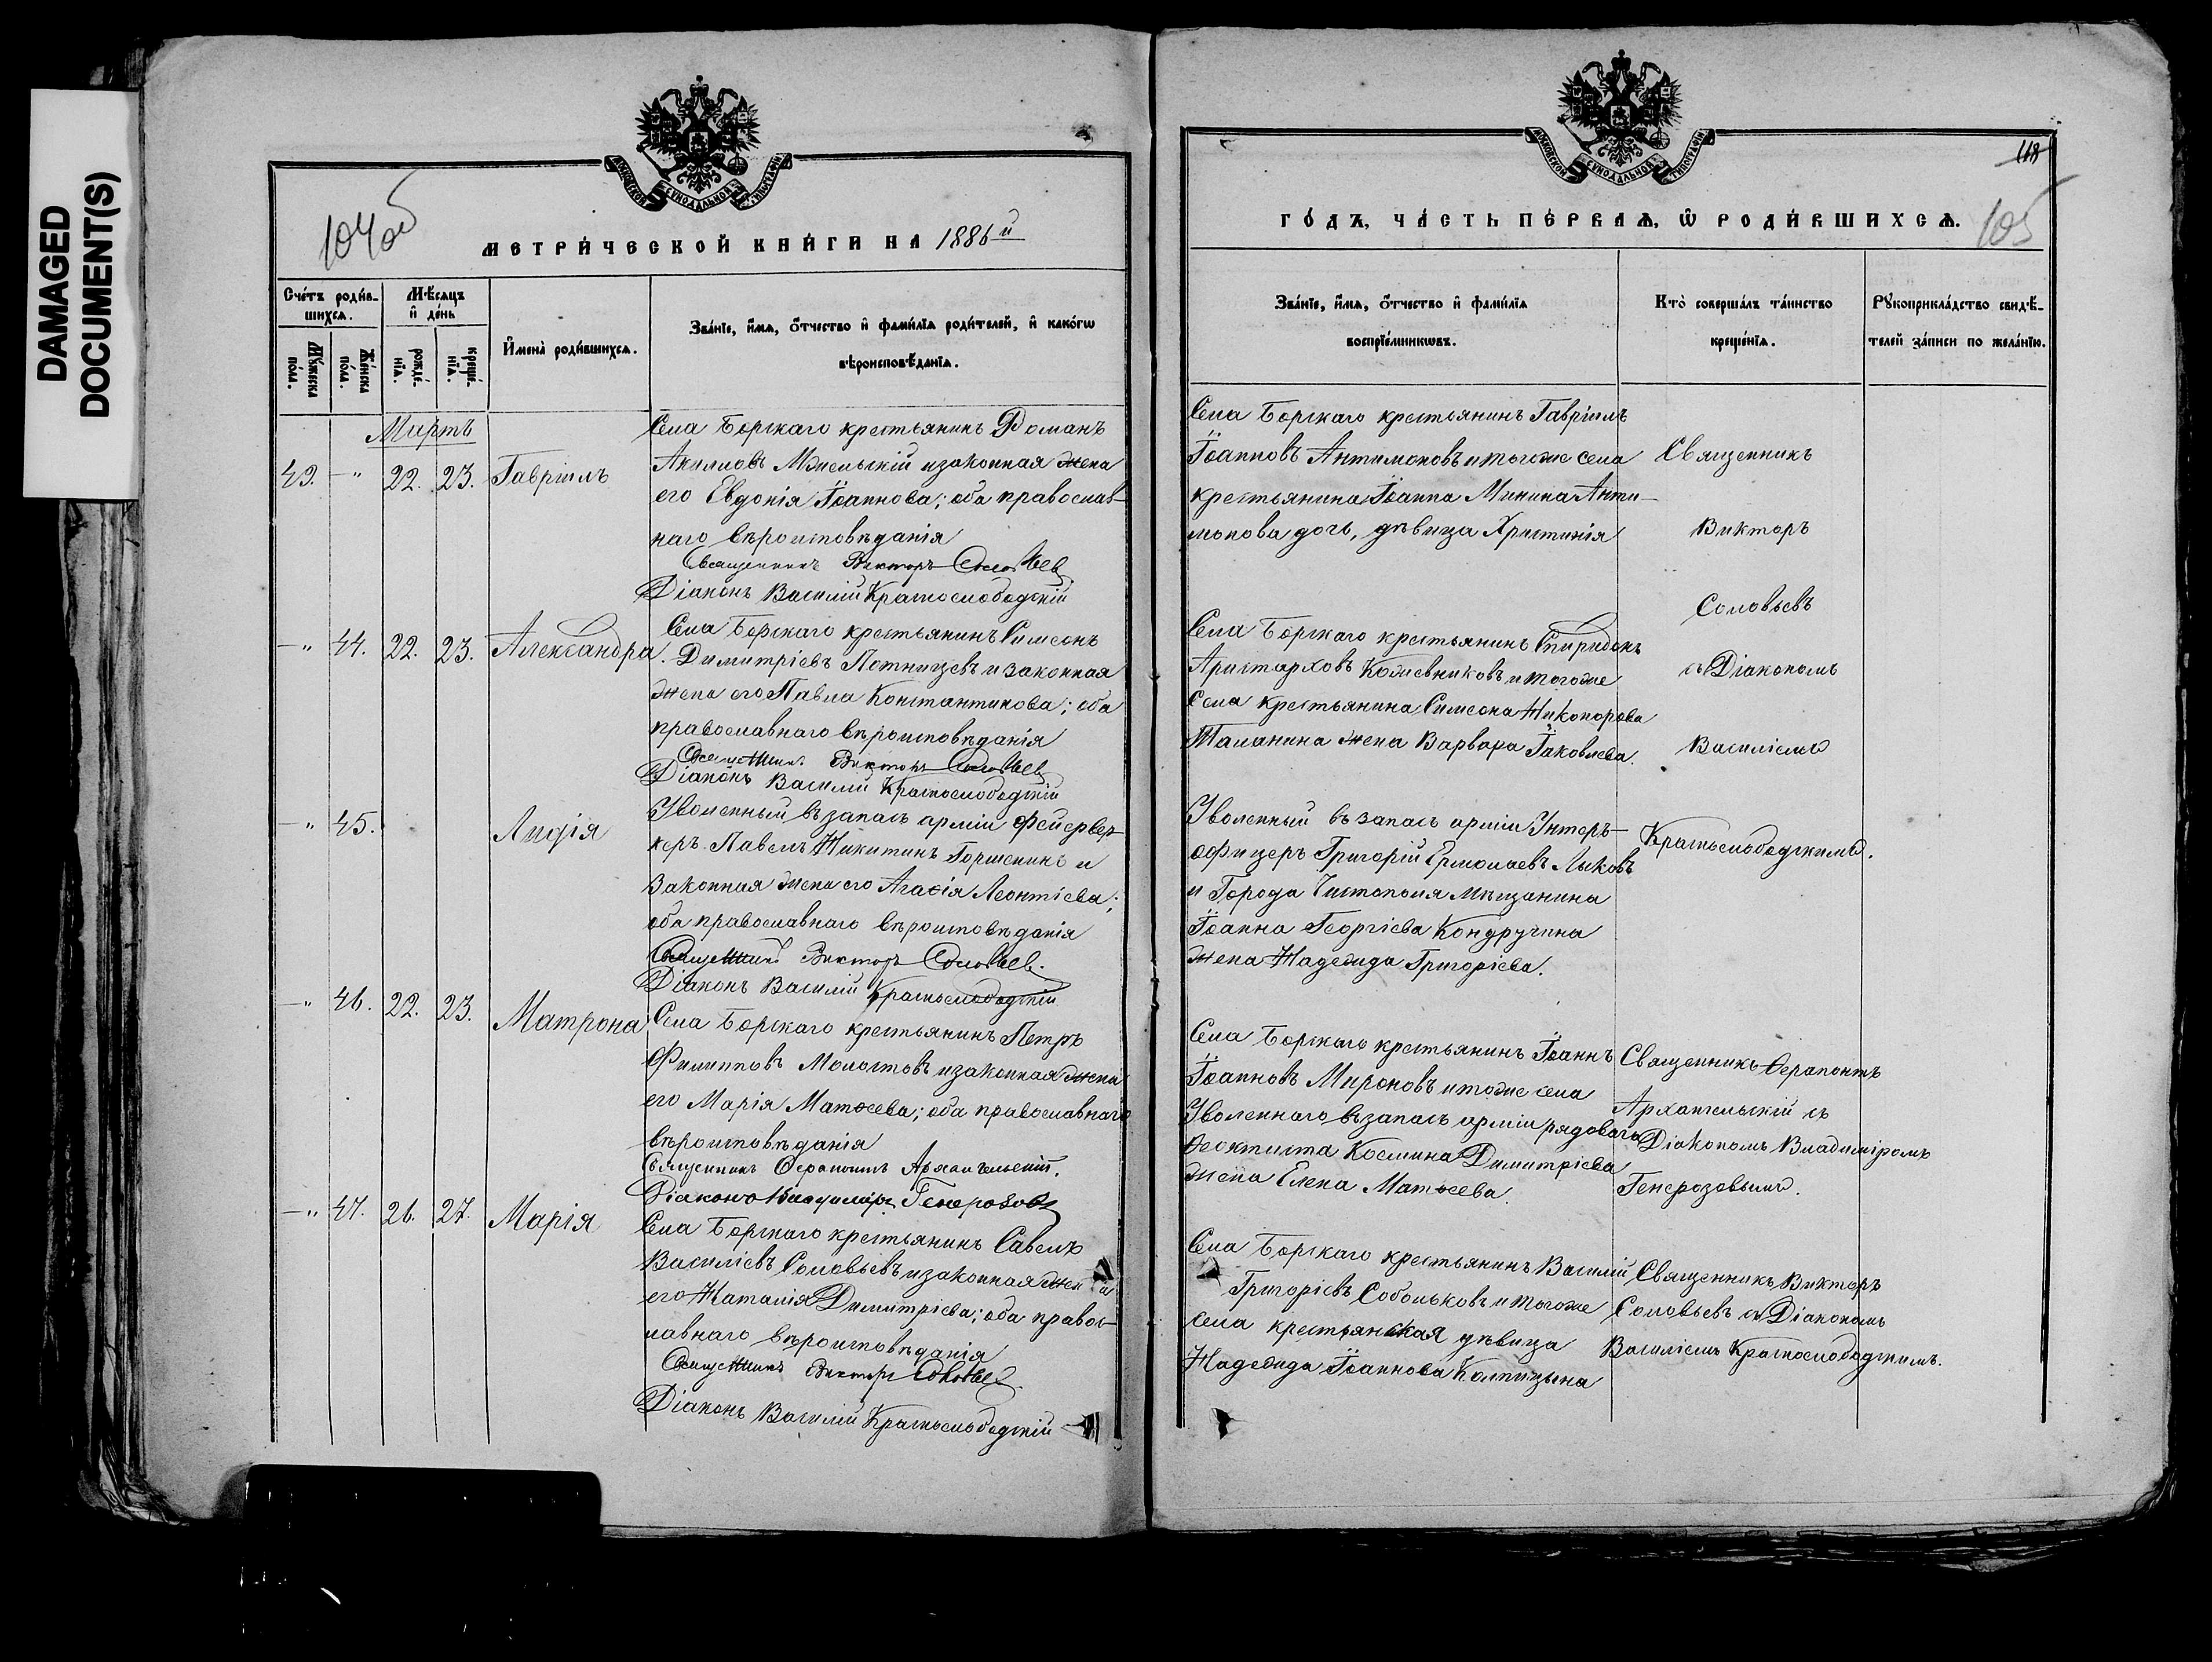 DAMAGED
DOCUMENT(S)
МОСКОВСКОЙ СѴНОДАЛЬНОЙ ТИПОГРАФІИ
104об
МЕТРИ́ЧЕСКОЙ КНИ́ГИ НА 1886й
Сче́тъ роди́в-
шихсѧ.
Мѣ́сѧцъ
и҆ де́нь
Му́жеска
по́ла.
Же́нска
по́ла.
рожде́-
нїѧ.
креще́-
нїѧ.
И҆мена̀ роди́вшихсѧ.
Зва́нїе, и҆́мѧ, ѻ҆́тчество и҆ фами́лїѧ роди́телей, и҆ како́гѡ
вѣроисповѣ́данїѧ.
Мартъ
43. -" 22. 23. Гавріилъ
Села Борскаго крестьянинъ Романъ
его Евдокія Іоаннова; оба православ-
наго вѣроисповѣданія
Священникъ Викторъ Соловьев
Діаконъ Василій Краснослободскій
-" 44. 22. 23. Александра.
Села Борскаго крестьянинъ Симеонъ
Димитріевъ Плотницевъ и законная
жена его Павла Константинова; оба
православнаго вѣроисповѣданія
Священникъ Викторъ Соловьев
Діаконъ Василій Краснослободскій
-" 45. Лидія
Уволенный въ запасъ арміи фейервер-
керъ Павелъ Никитинъ Горшенинъ и
законная жена его Агафія Леонтіева;
оба православнаго вѣроисповѣданія
Священникъ Викторъ Соловьев.
Діаконъ Василій Краснослободскій
-" 46. 22. 23. Матрона
Села Борскаго крестьянинъ Петръ
Филипповъ Молостовъ и законная жена
его Марія Матѳеева; оба православнаго
вѣроисповѣданія
Священникъ Ѳерапонтъ Архангельскій.
Діаконъ Владиміръ Генерозовъ
-" 47. 26. 27. Марія
Села Борскаго крестьянинъ Савелъ
Василіевъ Соловьевъ и законная жена
его Наталія Димитріева; оба правос-
лавнаго вѣроисповѣданія
Священникъ Викторъ Соловьев
Діаконъ Василій Краснослободскій
МОСКОВСКОЙ СѴНОДАЛЬНОЙ ТИПОГРАФІИ
118
105
ГО́ДЪ, ЧА́СТЬ ПЕ́РВАѦ, Ѡ҆ РОДИ́ВШИХСѦ.
Зва́нїе, и҆́мѧ, ѻ҆́тчество и҆ фами́лїѧ
воспрїе́мникѡвъ.
Кто̀ соверша́лъ та́инство
креще́нїѧ.
Рꙋкоприкла́дство свидѣ́-
телей за́писи по жела́нїю.
Села Борскаго крестьянинъ Гавріилъ
Іоанновъ Антимоновъ и тогоже села
крестьянина Іоанна Минина Анти-
монова дочь, дѣвица Христинія
Священникъ
Викторъ
Соловьевъ
съ Діакономъ
Василіемъ
Краснослободскимъ.
Села Борскаго крестьянинъ Спиридонъ
Аристарховъ Кожевниковъ и тогоже
села крестьянина Симеона Никонорова
Таланина жена Варвара Іаковлева.
Уволенный въ запасъ арміи Унтеръ-
офицеръ Григорій Ермолаевъ Лыковъ
и Города Чистополя мѣщанина
Іоанна Георгіева Кондручина
жена Надежда Григоріева.
Села Борскаго крестьянинъ Іоаннъ
Іоанновъ Мироновъ и тоже села
Уволеннаго въ запасъ арміи рядоваго
Ѳеоктиста Космина Димитріева
жена Елена Матѳеева.
Священникъ Ѳерапонтъ
Архангельскій съ
Діакономъ Владиміромъ
Генерозовымъ.
Села Борскаго крестьянинъ Василій
Григоріевъ Собольковъ и тогоже
села крестьянская дѣвица
Надежда Іоаннова Колпицына
Священникъ Викторъ
Соловьевъ съ Діакономъ
Василіемъ Краснослободскимъ.